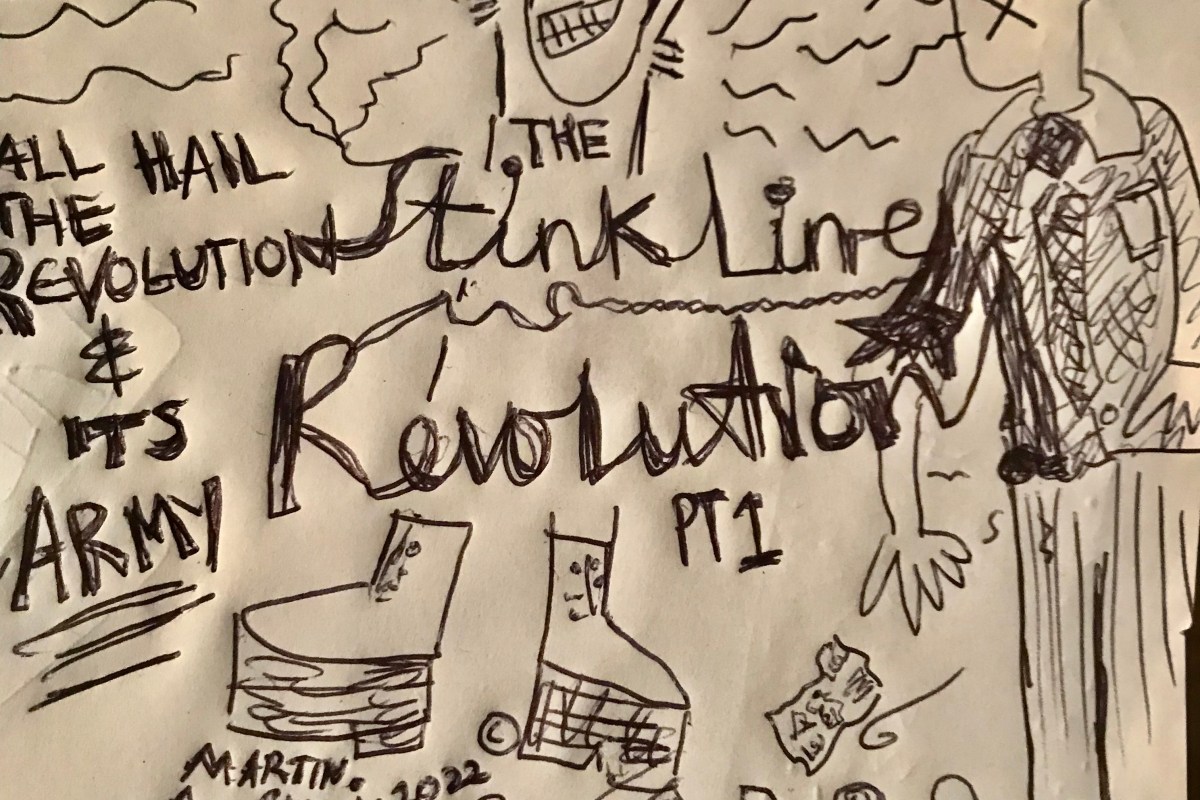 ALL HAIL
THE
REVOLUTION
&
ITS
ARMY
THE
Stink Line
Revolution
PT 1
©
MARTIN.
2022